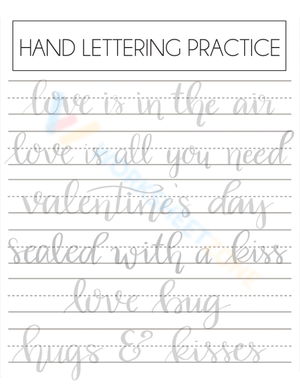 HAND LETTERING PRACTICE
love is in the air
love is all you need
valentine's day
sealed with a kiss
love bug
hugs & kisses
WORKSHEETZONE